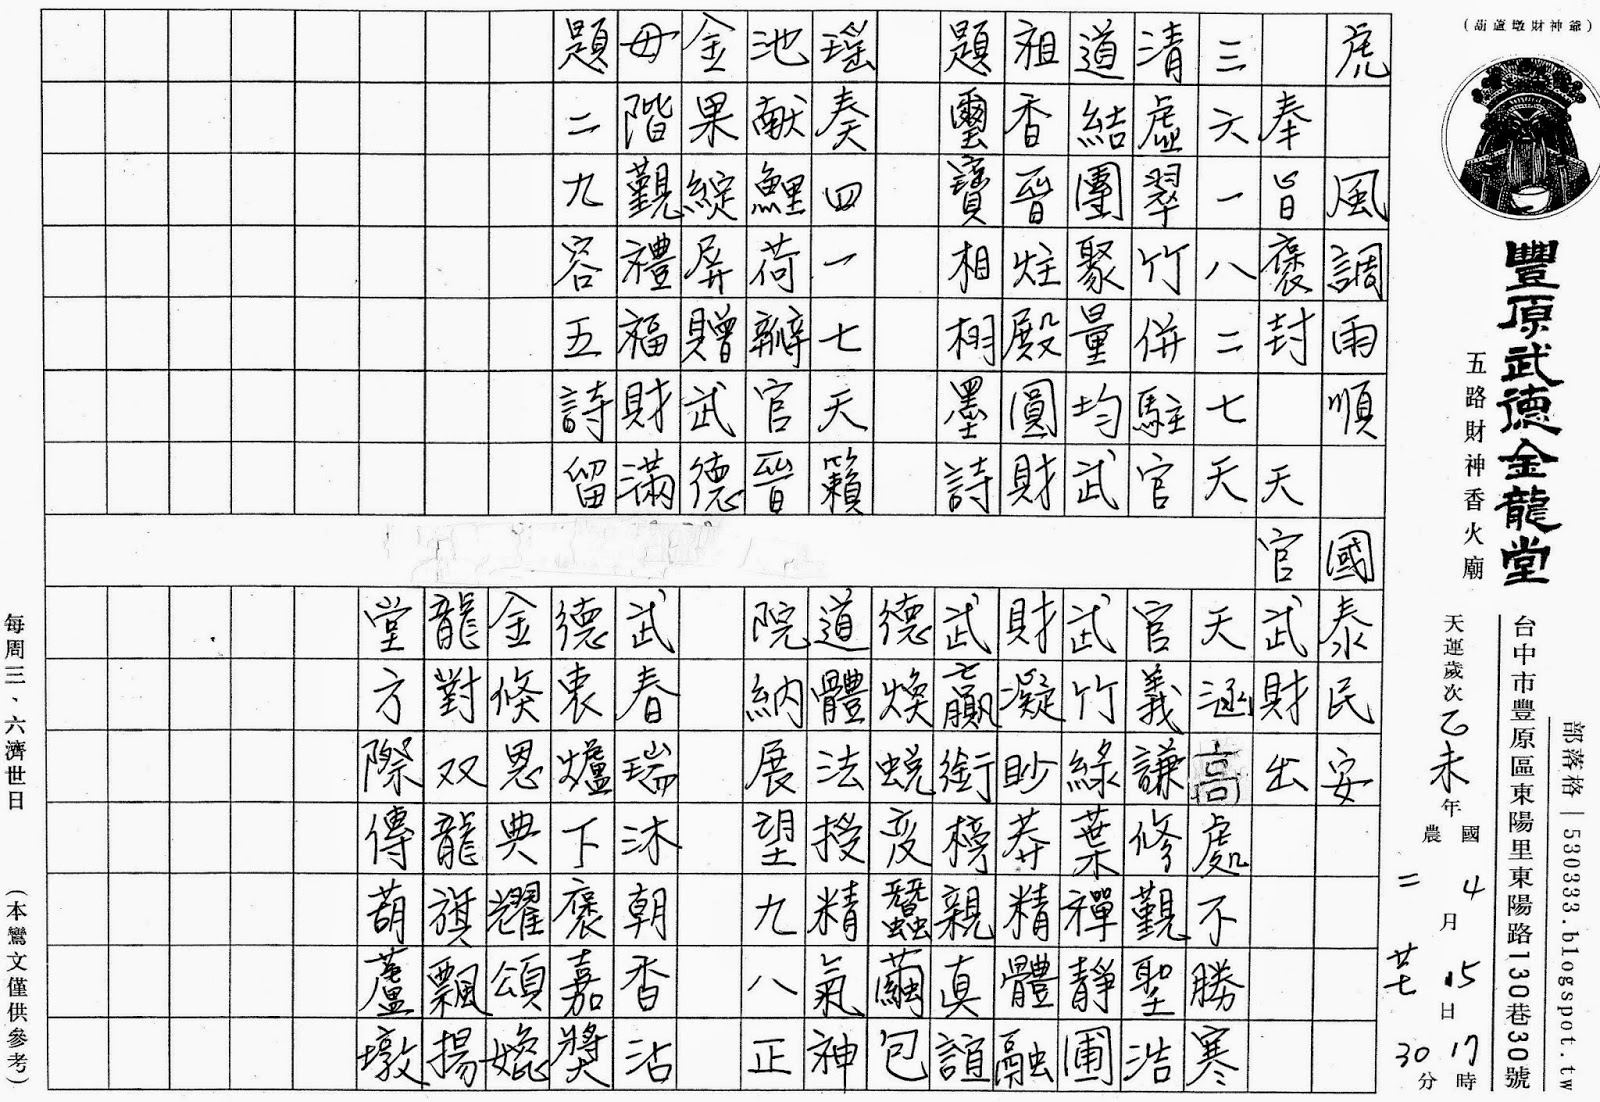 （葫蘆墩財神爺）
豐原武德金龍堂
五路財神香火廟
部落格│530333.blogspot.tw
台中市豐原區東陽里東陽路130巷30號
天運歲次乙未年
國4月15日17時
農二月廿七日30分
虎 風調雨順 國泰民安
奉旨褒封 天官武財出
三六一八二七天
清虛翠竹併駐官
道結團聚量均武
祖香晉炷殿圓財
題璽寶相栩墨詩
瑤奏四一七天籟
池獻鯉荷瓣官晉
金果綻屏贈武德
母階覲禮福財滿
題二九容五詩留
天涵高處不勝寒
官義謙修覲聖浩
武竹綠葉禪靜圃
財凝眇莽精體融
武贏銜榜親真誼
德煥蛻変蠶繭包
道體法授精氣神
院納展望九八正
武春瑞沐朝香沾
德衷爐下褒嘉獎
金倏恩典耀頌
龍對双龍旗飄揚
堂方際傳葫蘆墩
每周三、六濟世日
（本鸞文僅供參考）